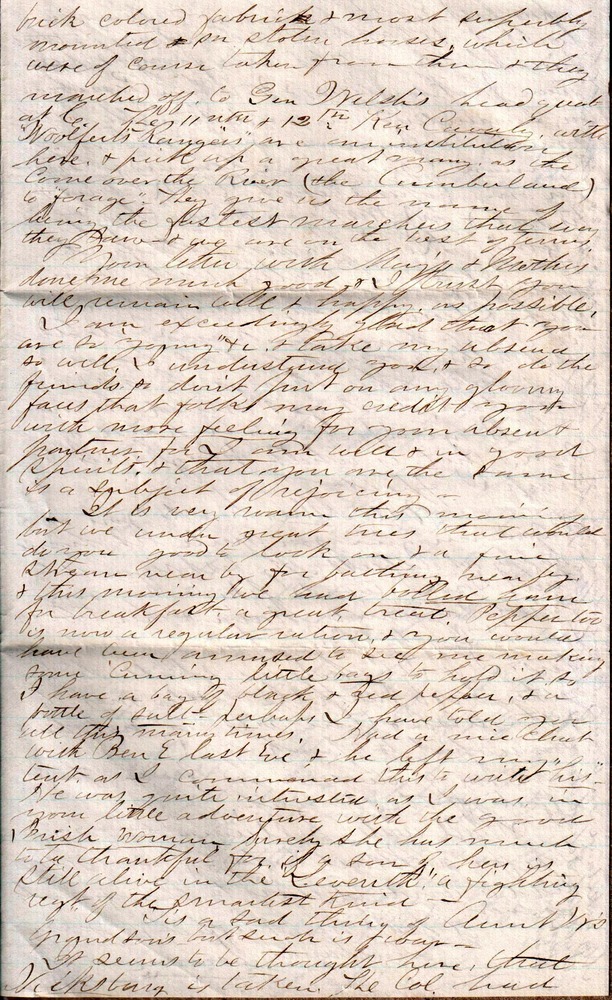 brick colored fabrick & most superbly
mounted & on stolen horses, which
were of course taken from them & they
marched off to Gen Welsh's head quat
of C. The 11 & 12th Ken Cavalry, with
"Woolfords Rangers" are an institution
here & pick up a great many as they
come over the River (the Cumberland)
to "forage". They give us the name of
being the fastest marchers that ever
they saw & we are on the best of terms.
Your letter with & Mothers
done me much good & I trust you
will remain well & happy as possible.
I am exceedingly glad that you
are so "young" &c. & take my absence
so well, I understand you, & so do the
friends, so dont put on any gloomy
faces that folks may credit you
with more feeling for your absent
partner, for I am well & in good
spirits, & that you are the same
is a subject of rejoicing —
It is very warm this morning
but we under great trees that would
do you good to look on & a fine
stream near by for bathing
& this morning we had boiled ham
for breakfast a great treat. Pepper too
is now a regular ration, & you would
have been amused to see me making
some cunning little bags to hold it so
I have a bag of black & red pepper, & a
bottle of salt — perhaps I have told you
all this many times. Had a nice chat
with Ben E last Eve & he left my "his"
tent as I commenced this to write his —
He was quite interested as I was in
your little adventure with the good
Irish woman, surely she has much
to be thankful for, if a son of hers is
still alive in the Seventh! a fighting
regt of the smartest kind —
Tis a sad thing of Aunt N's
grandsons but such is war —
It seems to be thought here, that
Vicksburg is taken. The Col. had